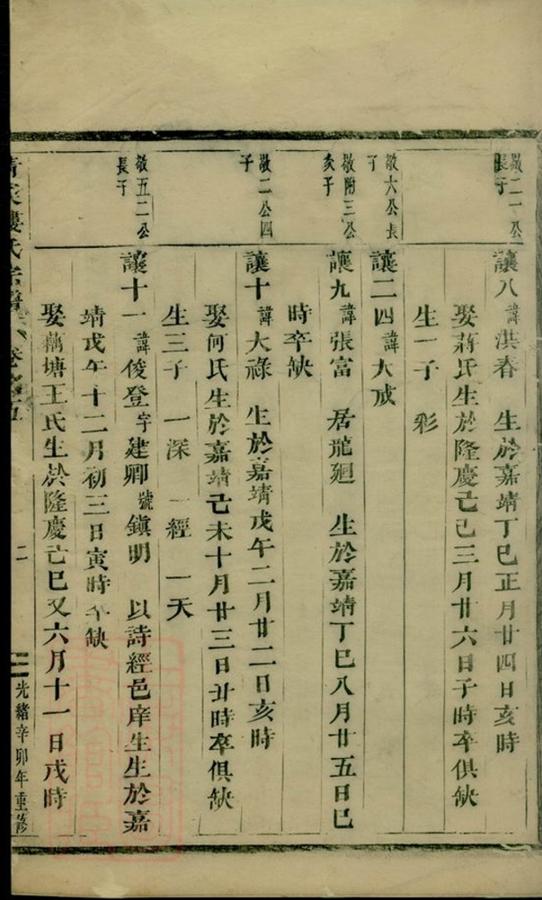 敬二一公
長子
讓八 諱洪春 生於嘉靖丁巳正月廿四日亥時
娶蔣氏生於隆慶己巳三月廿六日子時卒俱缺
生一子 彩
敬六公長
子
讓二四 諱大戒
敬附三公
亥子
讓九 諱張富 居龍廻 生於嘉靖丁巳八月廿五日巳
時卒缺
敬二公四
子
讓十 諱大祿 生於嘉靖戊午二月廿二日亥時
娶何氏生於嘉靖己未十月廿三日丑時卒俱缺
生三子 一深 一經 一天
敬五二公
長子
讓十一 諱俊登 字建卿 號鎭明 以詩經邑庠生生於嘉
靖戊午十二月初三日寅時卒缺
娶藕塘王氏生於隆慶己巳又六月十一日戌時
清家婁氏宗譜 卷之五
二
光緒辛卯年重修